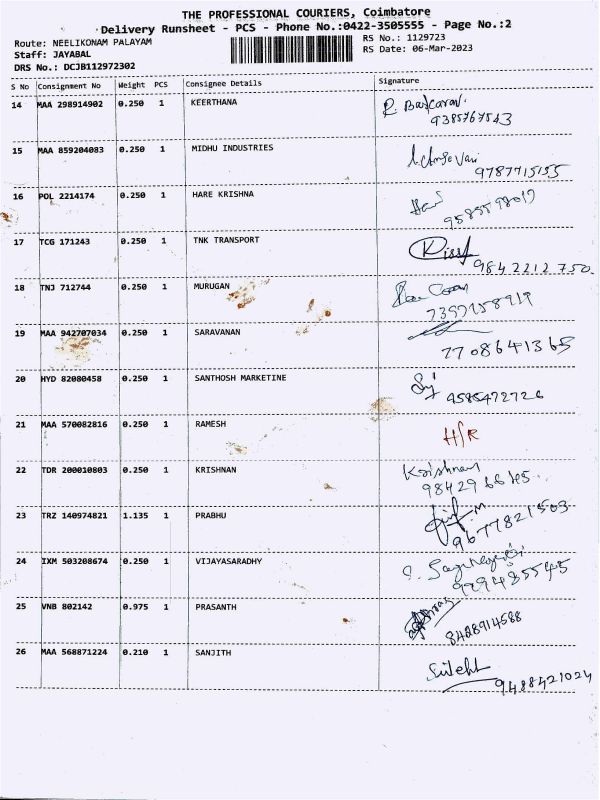 THE PROFESSIONAL COURIERS, Coimbatore
Delivery Runsheet - PCS - Phone No.:0422-3505555 - Page No.:2
Route: NEELIKONAM PALAYAM
RS No.: 1129723
Staff: JAYABAL
RS Date: 06-Mar-2023
DRS No.: DCJB112972302
S No Consignment No Weight PCS Consignee Details Signature
14 MAA 298914902 0.250 1 KEERTHANA R. Baskaran
9385767543
15 MAA 859204083 0.250 1 MIDHU INDUSTRIES
9787715155
16 POL 2214174 0.250 1 HARE KRISHNA
17 TCG 171243 0.250 1 TNK TRANSPORT
9842212750.
18 TNJ 712744 0.250 1 MURUGAN
19 MAA 942707034 0.250 1 SARAVANAN
7708641365
20 HYD 82080458 0.250 1 SANTHOSH MARKETINE
9585472726
21 MAA 570082816 0.250 1 RAMESH H/R
22 TDR 200010803 0.250 1 KRISHNAN Krishnan
23 TRZ 140974821 1.135 1 PRABHU
9677821503
24 IXM 503208674 0.250 1 VIJAYASARADHY
25 VNB 802142 0.975 1 PRASANTH
8428914588
26 MAA 568871224 0.210 1 SANJITH
9488421024